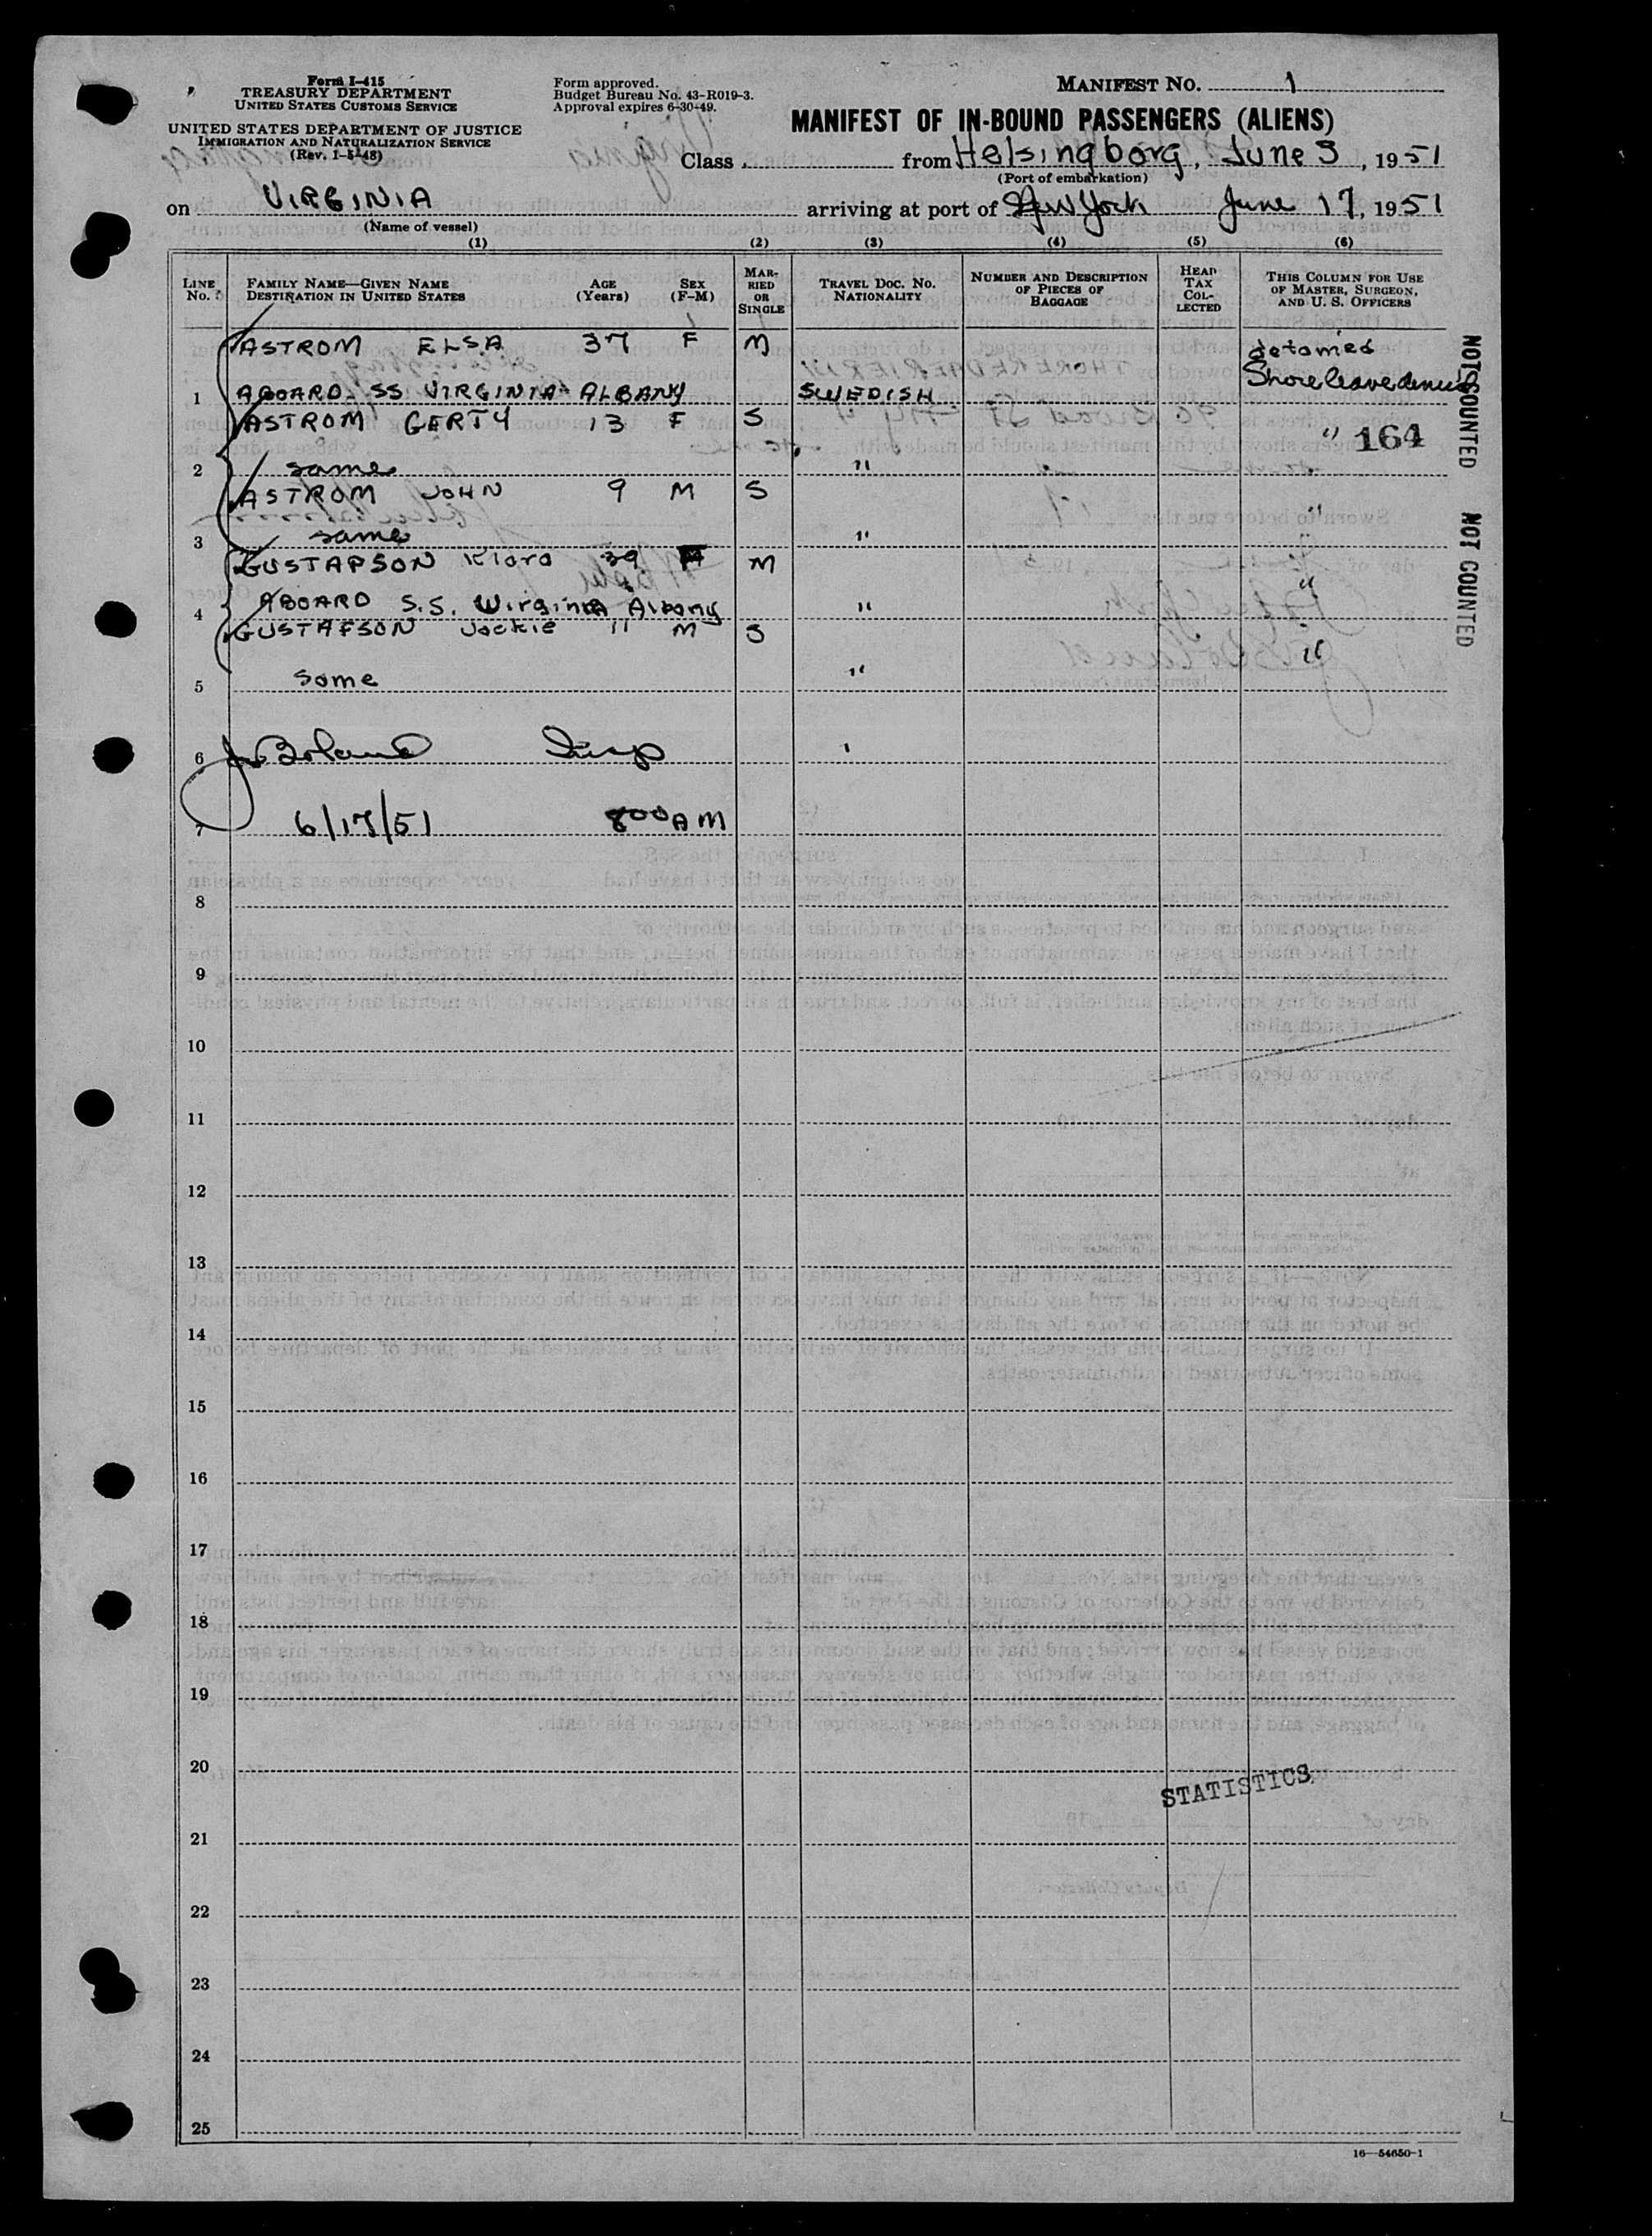 Form I-415
TREASURY DEPARTMENT
UNITED STATES CUSTOMS SERVICE
UNITED STATES DEPARTMENT OF JUSTICE
IMMIGRATION AND NATURALIZATION SERVICE
(Rev. 1-5-48)
Form approved.
Budget Bureau No. 43-R019-3.
Approval expires 6-30-49.
MANIFEST NO. 1
MANIFEST OF IN-BOUND PASSENGERS (ALIENS)
Class from Helsingborg, June 3, 1951
(Port of embarkation)
on VIRGINIA arriving at port of New York June 17, 1951
(Name of vessel)
(1) (2) (3) (4) (5) (6)
LINE No. FAMILY NAME—GIVEN NAME DESTINATION IN UNITED STATES AGE (Years) SEX (F-M) MARRIED OR SINGLE TRAVEL DOC. NO. NATIONALITY NUMBER AND DESCRIPTION OF PIECES OF BAGGAGE HEAD TAX COLLECTED THIS COLUMN FOR USE OF MASTER, SURGEON, AND U. S. OFFICERS
ASTROM ELSA 37 F M detained
1 ABOARD SS VIRGINIA ALBANY SWEDISH Shore leave denied
ASTROM GERTY 13 F S " 164
2 same "
ASTROM JOHN 9 M S "
3 same "
GUSTAFSON Klara 39 F M "
4 ABOARD S.S. Wirginia Albany "
GUSTAFSON Jackie 11 M S "
5 same "
6 J Boland Insp
7 6/17/51 8 00 AM
8
9
10
11
12
13
14
15
16
17
18
19
20
STATISTICS
21
22
23
24
25
16—54650-1
NOT COUNTED
NOT COUNTED